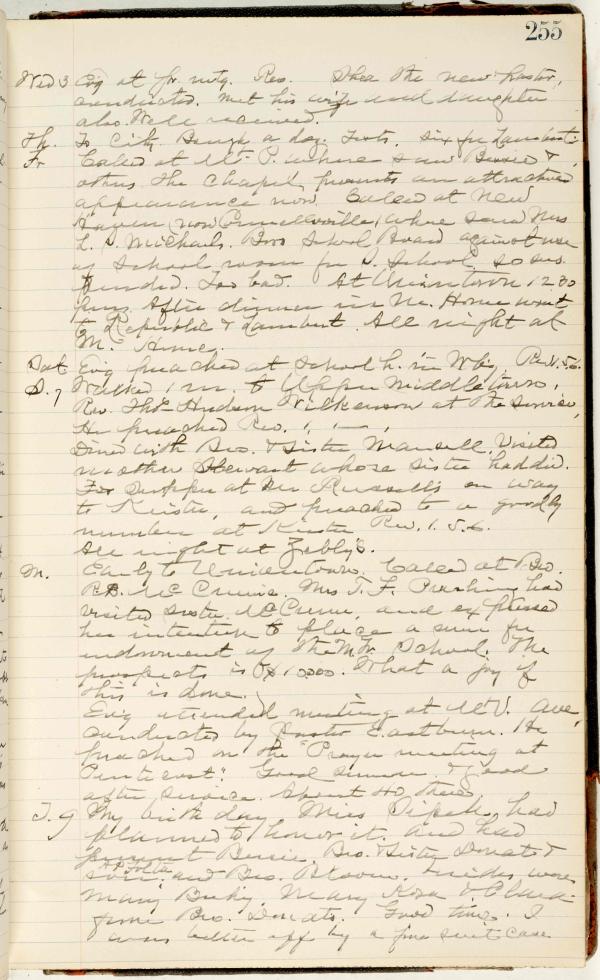 255
Wed 3 Evig at pr. mtg. Res. Shea the new Pastor,
conducted. Met his wife and daughter
also. Well received.
Th. To City. Bough a doz. Tests. six for Lambert.
Fr Called at Mt. P. where saw Bessie &
others. The chapel presents an attractive
appearance now. Called at New
Haven (now Connellsville) where saw Mrs
L. D. Michaels. Boro School Board against use
of School room for S. School, so sus
pended. Too bad. At Uniontown 12.30
p.m. After dinner in Mc. Home went
to Republic & Lambert. All night at
M. Home.
Sat Evig preached at School h. in Rev. 1.5.6.
S. 7 Walked 1 m. to Upper Middletown,
Rev. Thos. Hudson Wilkenson at the service,
He preached Rev. 1,
Dined with Bro. & Sister Mansell. Visited
mother Stewart whose sister had died.
For supper at Mr Russell's on way
to Keister, and preached to a goodly
number at Keister Rev. 1.5.6.
All night at
M. Early to Uniontown. Called at Bro.
R.B. McCrum's. Mrs J. F. had
visited sister McCrum, and expressed
her intention to place a sum for
endowment of the M. Tr. School. The
prospects is of $10.000. What a joy if
this is done.
Evig attended meeting at Mt. V. Ave,
conducted by Pastor Eastburn. He
preached on the "Prayer meeting at
Pentecost." Good sermon & good
after service. Spent 40 there.
T. 9 My birth day. Miss had
planned to honor it. and had
present Bessie, Bro. & Sister Donat &
and Bro. Besides were
Mary, Mary Rosa & Clara
from Bro. Donats. Good time. I
was better off by a fine suit case